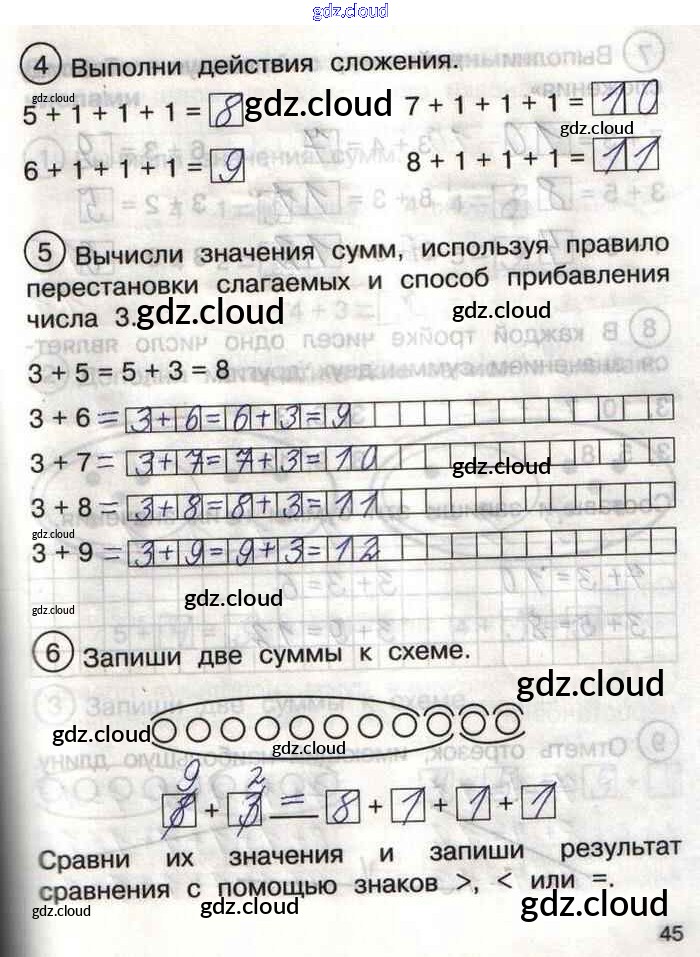 gdz.cloud
4 Выполни действия сложения.
gdz.cloud
5 + 1 + 1 + 1 = 8 gdz.cloud 7 + 1 + 1 + 1 = 10
gdz.cloud
6 + 1 + 1 + 1 = 9 8 + 1 + 1 + 1 = 11
5 Вычисли значения сумм, используя правило
перестановки слагаемых и способ прибавления
числа 3. gdz.cloud gdz.cloud
3 + 5 = 5 + 3 = 8
3 + 6 = 3+6=6+3=9
3 + 7 = 3+7=7+3=10 gdz.cloud
3 + 8 = 3+8=8+3=11
gdz.cloud
3 + 9 = 3+9=9+3=12
gdz.cloud
gdz.cloud
6 Запиши две суммы к схеме.
gdz.cloud
gdz.cloud
gdz.cloud
9 2
8 + 3 = 8 + 1 + 1 + 1
Сравни их значения и запиши результат
сравнения с помощью знаков >, < или =.
gdz.cloud gdz.cloud gdz.cloud
45